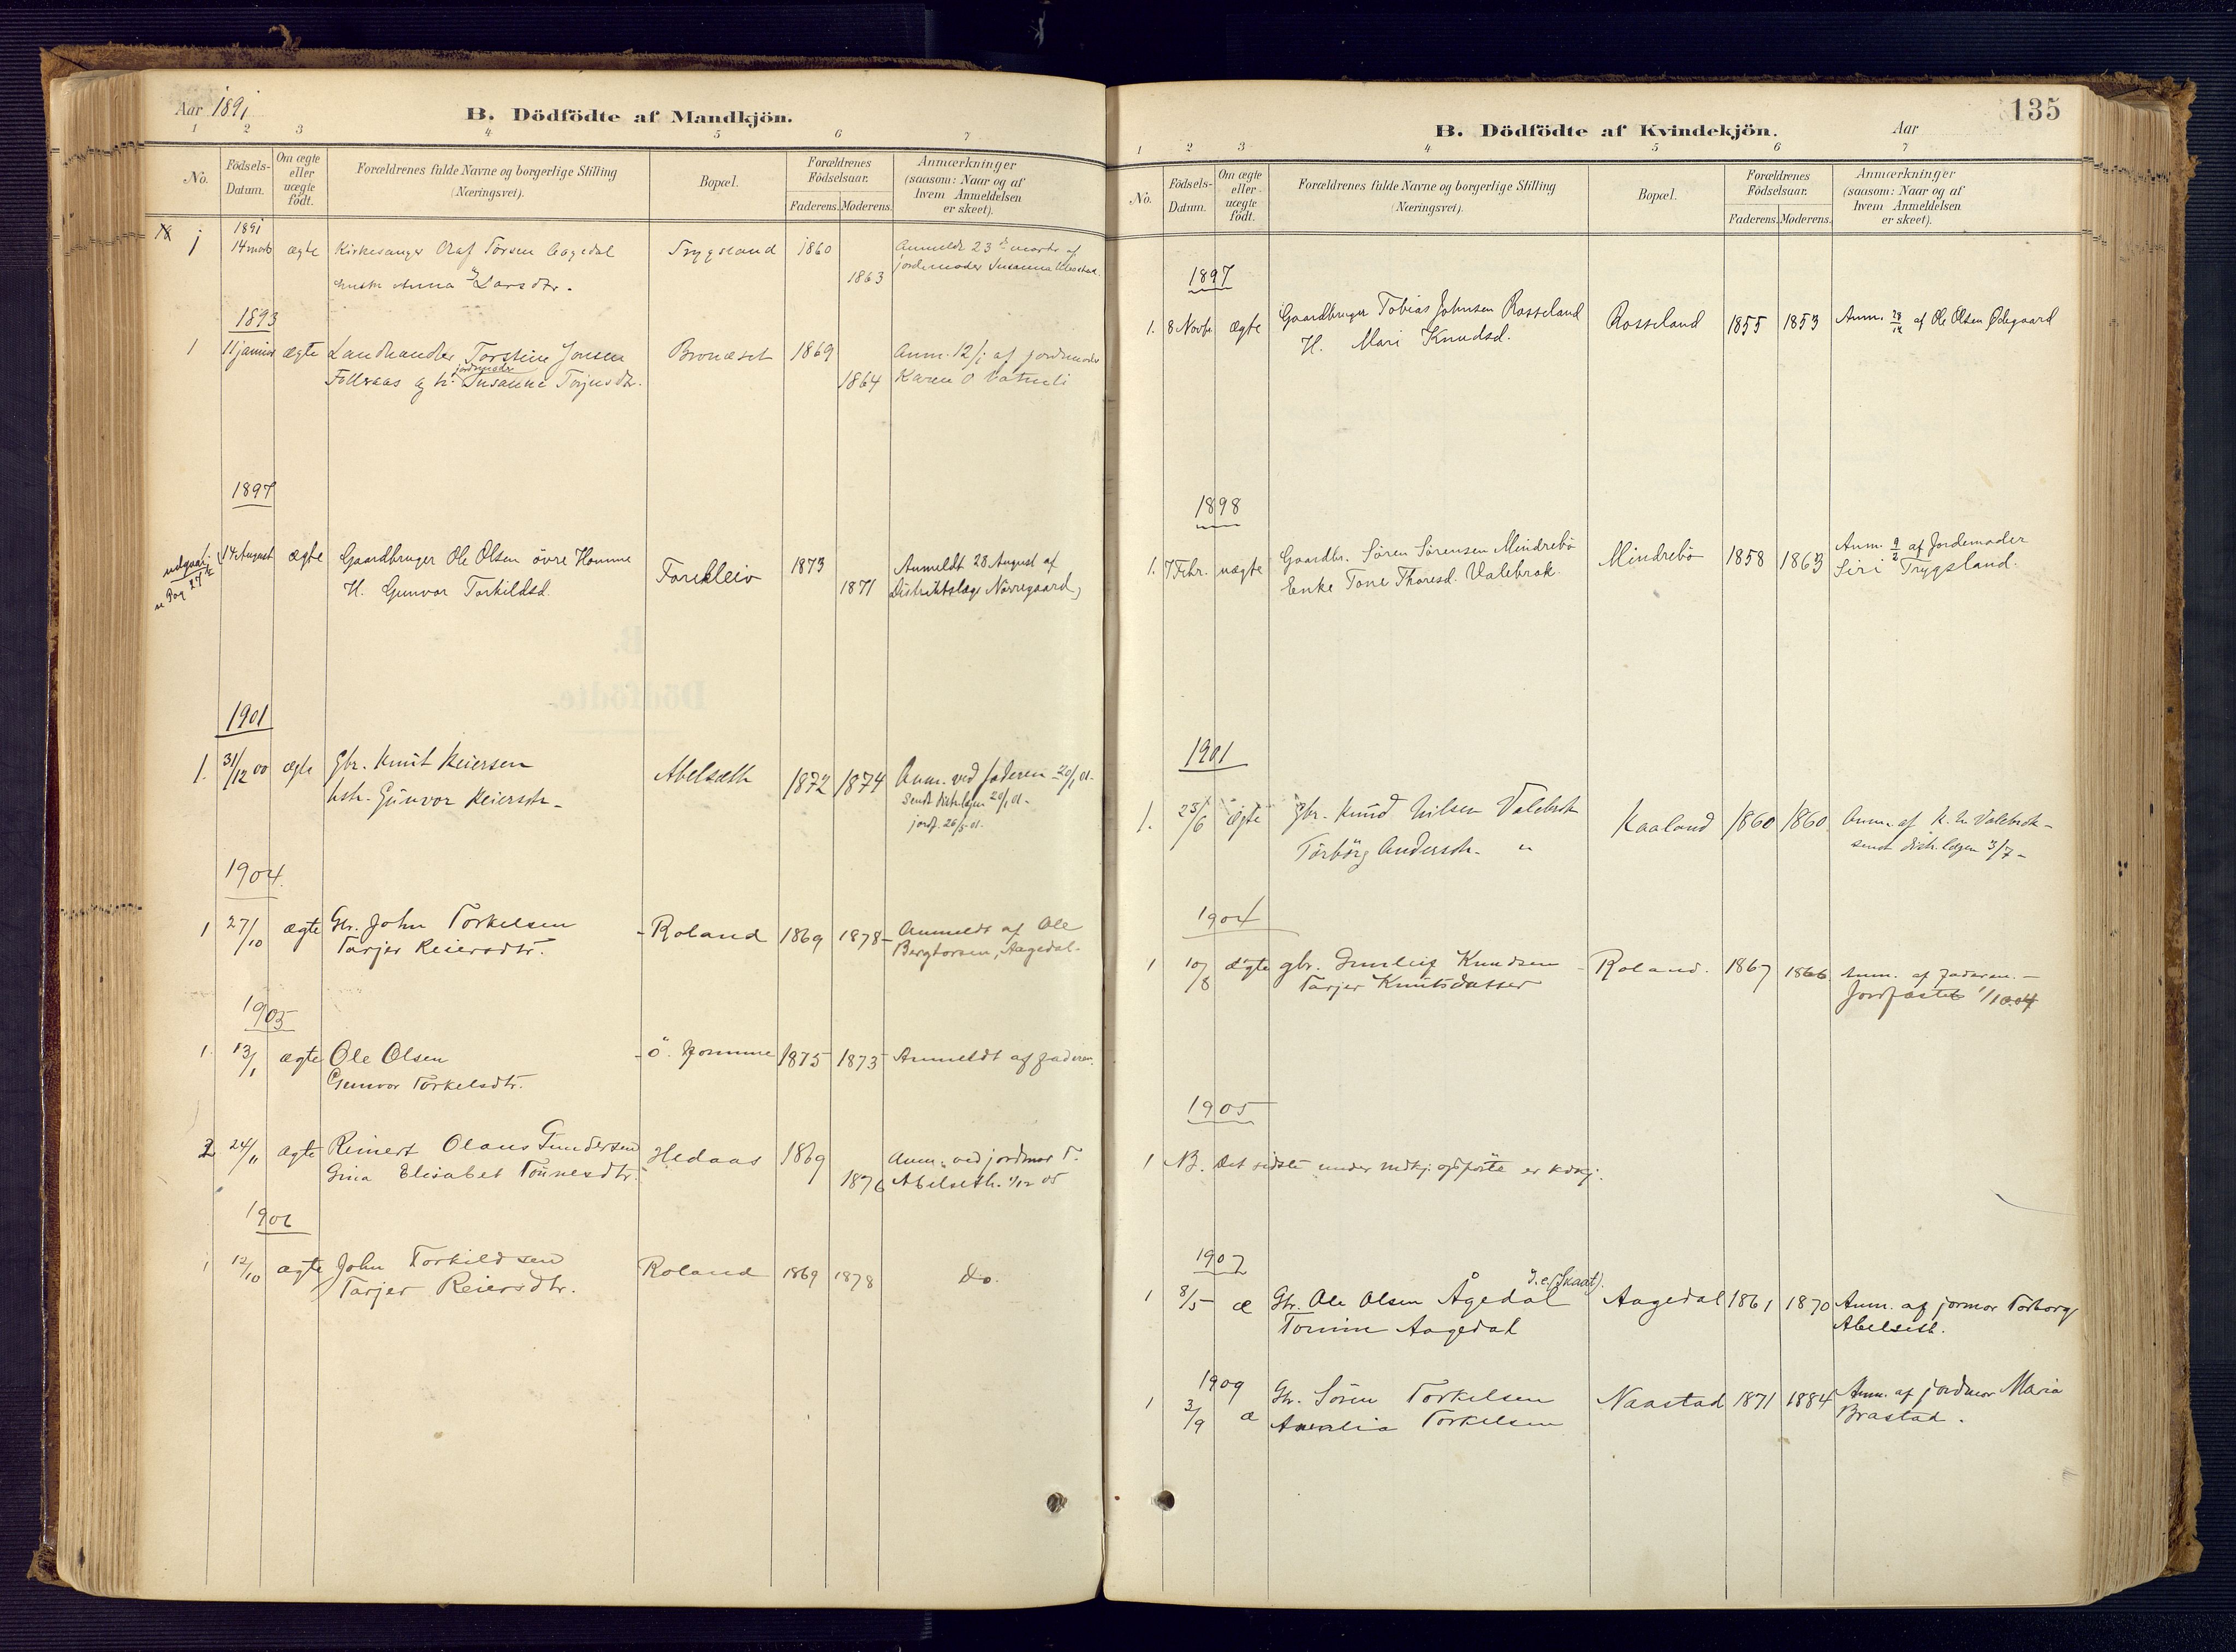 Aar 1891
B. Dödfödte af Mandkjön.
1 2 3 4 5 6 7
No.
Födsels-Datum.
Om ægte eller uægte födt.
Forældrenes fulde Navne og borgerlige Stilling (Næringsvei).
Bopæl.
Forældrenes Födselsaar.
Faderens. Moderens.
Anmærkninger (saasom: Naar og af hvem Anmeldelsen er skeet).
1891
1 14 marts ægte Kirkesanger Olaf Torsen Aagedal Trygsland 1860 Anmeldt 23de marts af
Anna Larsdtr. 1863 jordemoder Susanna
1893
1 11 januar ægte Landhandler Torstine Jonsen Bronæset 1869 Anm. 12/1 af jordemoder
jordmoder
Folleraas og h. Susanne Torjusdtr. 1864 Karen O Vatneli
1897
udgaar,
se Pag 24
(14 August ægte Gaardbruger Ole Olsen övre Homme Farekleiv 1873 Anmeldt 28 August af
H. Gunvor Torkildsd. 1871 Distriktslæge Nörregaard)
1901
1. 31/12 00 ægte Gbr. Knut Reiersen Abelsæth 1872 1874 Anm. ved faderen 20/1 01.
hstr. Gunvor Reiersdtr. sendt distr.lægen 20/1 01.
jordf. 26/5 01.
1904.
1 27/10 ægte Gbr. John Torkelsen Roland 1869 1878 Anmeldt af Ole
Tarjer Reiersdtr. Bergtorsen, Aagedal.
1905
1. 13/1 ægte Ole Olsen ö. Homme 1875 1873 Anmeldt af faderen.
Gunvor Torkelsdtr.
2 24/11 ægte Reinert Olaus Gundersen Hedaas 1869 Anm. ved jordmor T.
Gina Elisabet Tönnesdtr. 1876 Abelseth. 1/12 05
1906
1 12/10 ægte John Torkildsen Roland 1869 1878 Do.
Tarjer Reiersdtr.
135
B. Dödfödte af Kvindekjön.
Aar
1 2 3 4 5 6 7
No.
Födsels-Datum.
Om ægte eller uægte födt.
Forældrenes fulde Navne og borgerlige Stilling (Næringsvei).
Bopæl.
Forældrenes Födselsaar.
Faderens. Moderens.
Anmærkninger (saasom: Naar og af hvem Anmeldelsen er skeet).
1897
1. 8 Novbr. ægte Gaardbruger Tobias Johnsen Rosseland Rosseland 1855 1853 Anm. 28/12 af Ole Olsen Ødegaard
H. Mari Knudsd.
1898
1. 7 Febr. uægte Gaardbr. Sören Sörensen Mindrebö Mindrebö 1858 1863 Anm. 9/2 af Jordemoder
Enke Tone Thoresd. Valebrok. Siri Trygsland.
1901
1. 25/6 ægte Gbr. Knud Nilsen Valebrok Kaaland 1860 1860 Anm. af K. N. Valebrok
Torborg Andersdtr. " sendt distr.lægen 3/7
1904
1 10/8 ægte gbr. Gunleif Knudsen Roland. 1867 1866 Anm. af faderen.
Tarjer Knutsdatter Jordfæstet 1/10.04
1905
1 NB. Det sidste under mdkj. opförte er kvkj.
1907
1 8/5 æ Gbr. Ole Olsen Ågedal J.e. (Skaat). Aagedal 1861 1870 Anm. af jormor Torborg
Tomine Aagedal Abelseth.
1909
1 3/9 æ Gbr. Sören Torkelsen Naastad 1871 1884 Anm. af jordmor Maria
Amalia Torkelsen Brastad.